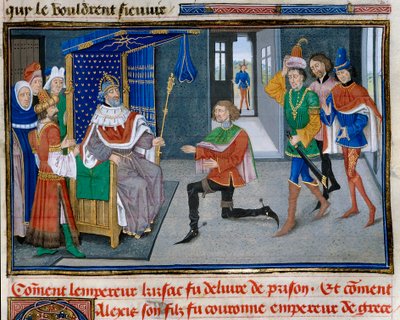 qui le vouldrent sieuuir
Com̃ent lempereur kirsac fu deliure de prison. Et cõment
Alexis son filz fu couronne empereur de grece